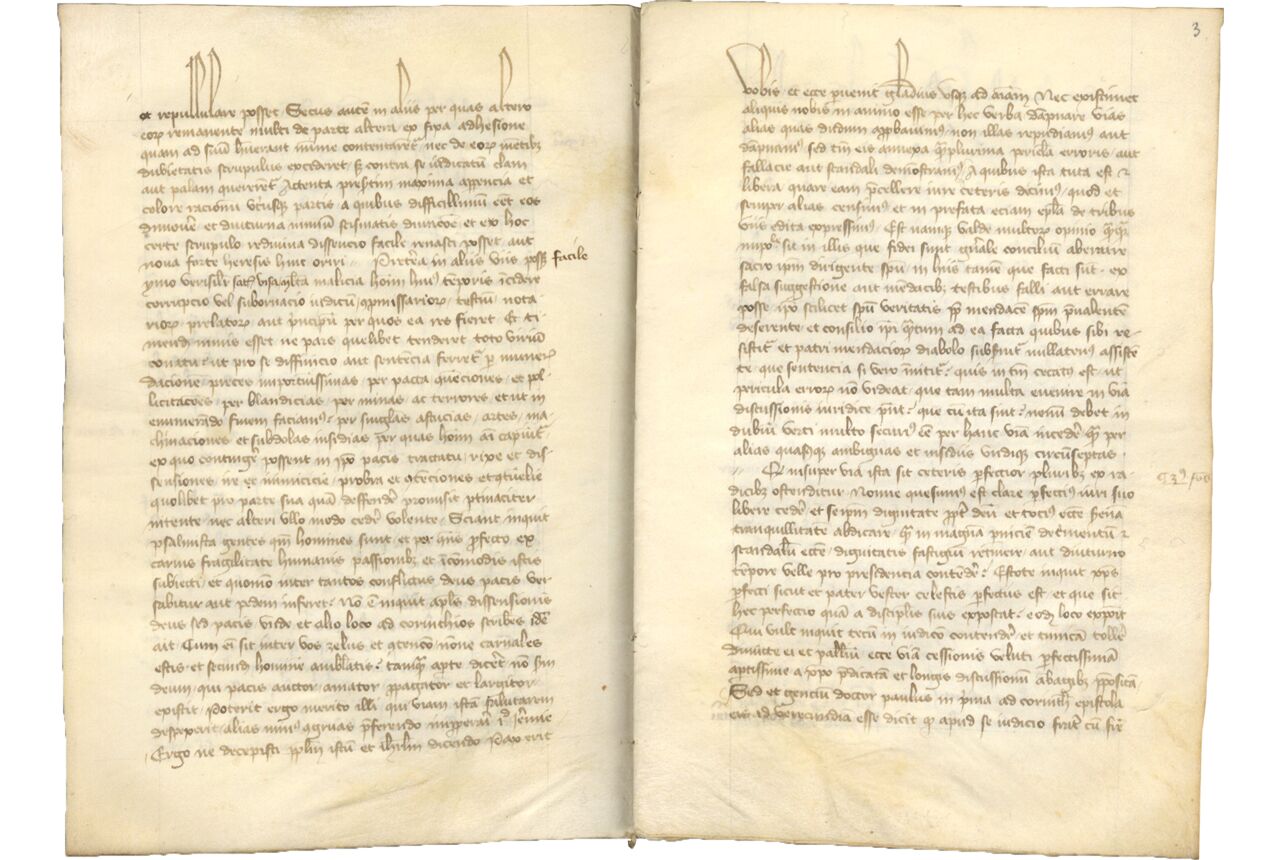 et repullulare posset Secus autē in aliis per quas altero
eorꝫ remanente multi de parte altera ex fixa adhesione
quam ad suū hūerant mīme contentarēt nec de eorꝫ mētibꝫ
dubietatis scrupulus excideret sꝫ contra se iudicatū clam
aut palam quererēt Actenta presertim maxima apparencia et
colore racionū vtriusqꝫ partis a quibus difficillimū eēt eos
dimouere et diuturna nimiū scismatis diuisione et ex hoc
certe scrupulo rediuiua dissencio facile renasci posset aut
noua forte heresis hinc oriri Preterea in aliis viis posset facile
ymo verisilr malicia hoīm huiꝰ tēporis īcidere
corrupcio vel subornacio iudicū, commissariorꝫ, testiū, nota
riorꝫ, prelatorꝫ aut prīcipū per quos ea res fieret Et ti
mendū nimis esset ne pars quelibet tenderet toto viriū
conatu ut pro se diffinicio aut sentēcia ferret' per munerꝫ
dacione, preces importunissimas, per pacta, et pol
licitacōes, per blandicias, per minas ac terrores, et ut in
enumerādo finem faciamꝰ, per singulas astucias, artes, ma
chinaciones et subdolas insidias per quas hoīm aī capiūt'
ex quo contingere possent in ipō pacis tractatu, rixe et dis
sensiones, ire et inimicicie, probra et
quolibet pro parte sua quā deffendere promisit ptinaciter
intente, nec alteri vllo modo cedere volente, Sciant inquit
psalmista gentes qm̄ homines sunt et profecto ex
carnis fragilitate humanis passionibꝫ et īcōmodis istis
subiecti, et quomō inter tantos conflictus deus pacis ver
sabitur aut pedem inferet, Nō ē inquit aplus dissensionis
deus sed pacis vnde et alio loco ad corinthios scribens idē
ait, Cum eī sit inter vos zelus et contencō nōne carnales
estis et secundū hominē ambulatis, tamqꝫ apte diceret nō scdm
deum, qui pacis auctor, amator propagator et largitor
existit, Poterit ergo merito illi qui viam istā salutarem
despexerit, alias minꝰ congruas preferendo improperari id Jeremie
Ergo ne decepisti pplm istū et ihrlm dicendo Pax erit
3
vobis et ecce peruenit gladius vsqꝫ ad aīam, Nec existimet
aliquis nobis in animo esse per hec verba dāpnare vias
alias quas dudum approbauimꝰ, non illas repudiamꝰ aut
dāpnamꝰ sed tm̄ eis annexa qꝫplurima pericla erroris, aut
fallacie aut scandali demōstramꝰ, A quibus ista tuta est et
libera quare eam precellere iure ceteris dicimꝰ, quod et
semper alias censuimꝰ et in prefata eciam epla de tribus
viis edita expressimꝰ, Est namqꝫ valde multorꝫ opinio qꝫqꝫ
sit in illis que fidei sunt generale conciliū aberrare
sacro ipm dirigente spū, in hiis tamen que facti sūt, ex
falsa suggestione aut mēdacibꝫ testibus falli aut errare
posse, ipo scilicet spū veritatis pp mendacē spm preualentē
deserente, et consilio ipi quātum ad ea facta quibus sibi re
sistit' et patri mendaciorꝫ diabolo nullatenꝰ assistē
te, que sentencia si vero īnitit', quis in tm̄ cecatꝰ est, ut
pericula errorꝫ nō videat, que tam multa euenire in viā
discussionis iuridice pn̄t, que cū ita sint, nemī debet in
dubiū verti multo securiꝰ eē per hanc viā incedere qꝫ per
alias quasqꝫ ambiguas et insidiis vndiqꝫ circūseptas
Q̄ insuper viā ista sit ceteris perfectior pluribꝫ ex ra
dicibꝫ ostenditur, Nonne quesumꝰ est clare perfectiꝰ iuri suo
libere cedere et seipm dignitate propter deū et tociꝰ ecce serēa
tranquillitatē abdicare, qꝫ in magnā pniciē detrimentū et
scandalū ecce, dignitatis fastigiū retinere, aut diuturno
tēpore velle pro presidencia contendere, Estote inquit xps
perfecti sicut et pater vester celestis perfectus est, et que sit
hec perfeccio quā a discipulis suis expostat, eodē loco exprimit
Qui vult inquit tecū in iudicio contendere, et tunicā tolle
dimitte ei et palliū, ecce viā cessionis veluti perfectissimā
aptissime a xpo predicatā et longis discussionū abagibꝫ prepositā,
Sed et genciū doctor paulus in prima ad corinthios epistola
verecundiā esse dicit qꝫ apud se iudicio frater cū frē